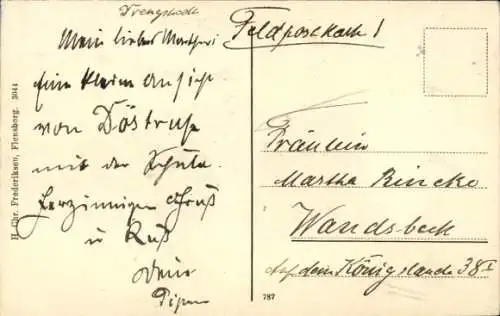 Mein lieber
Eine kleine Ansicht
von Döstrup
mit der Schule.
Herzinnigen Gruß
u Kuß
Dein
H. Chr. Frederiksen, Flensburg. 3044
Feldpostkarte!
Fräulein
Martha Rincke
Wandsbeck
Auf dem Königslande 38 I
787